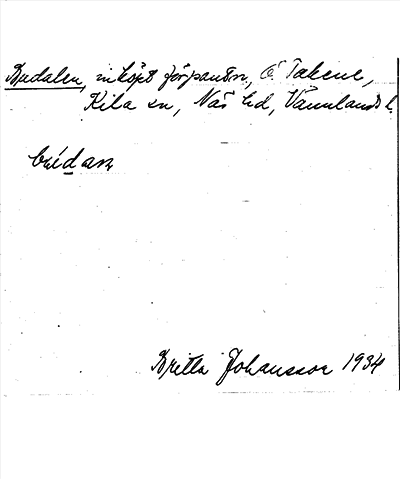 Budalen, inköpt förpantn., Ö. Takene,
Kila sn, Näs hd, Värmlands l.
Britta Johansson 1934